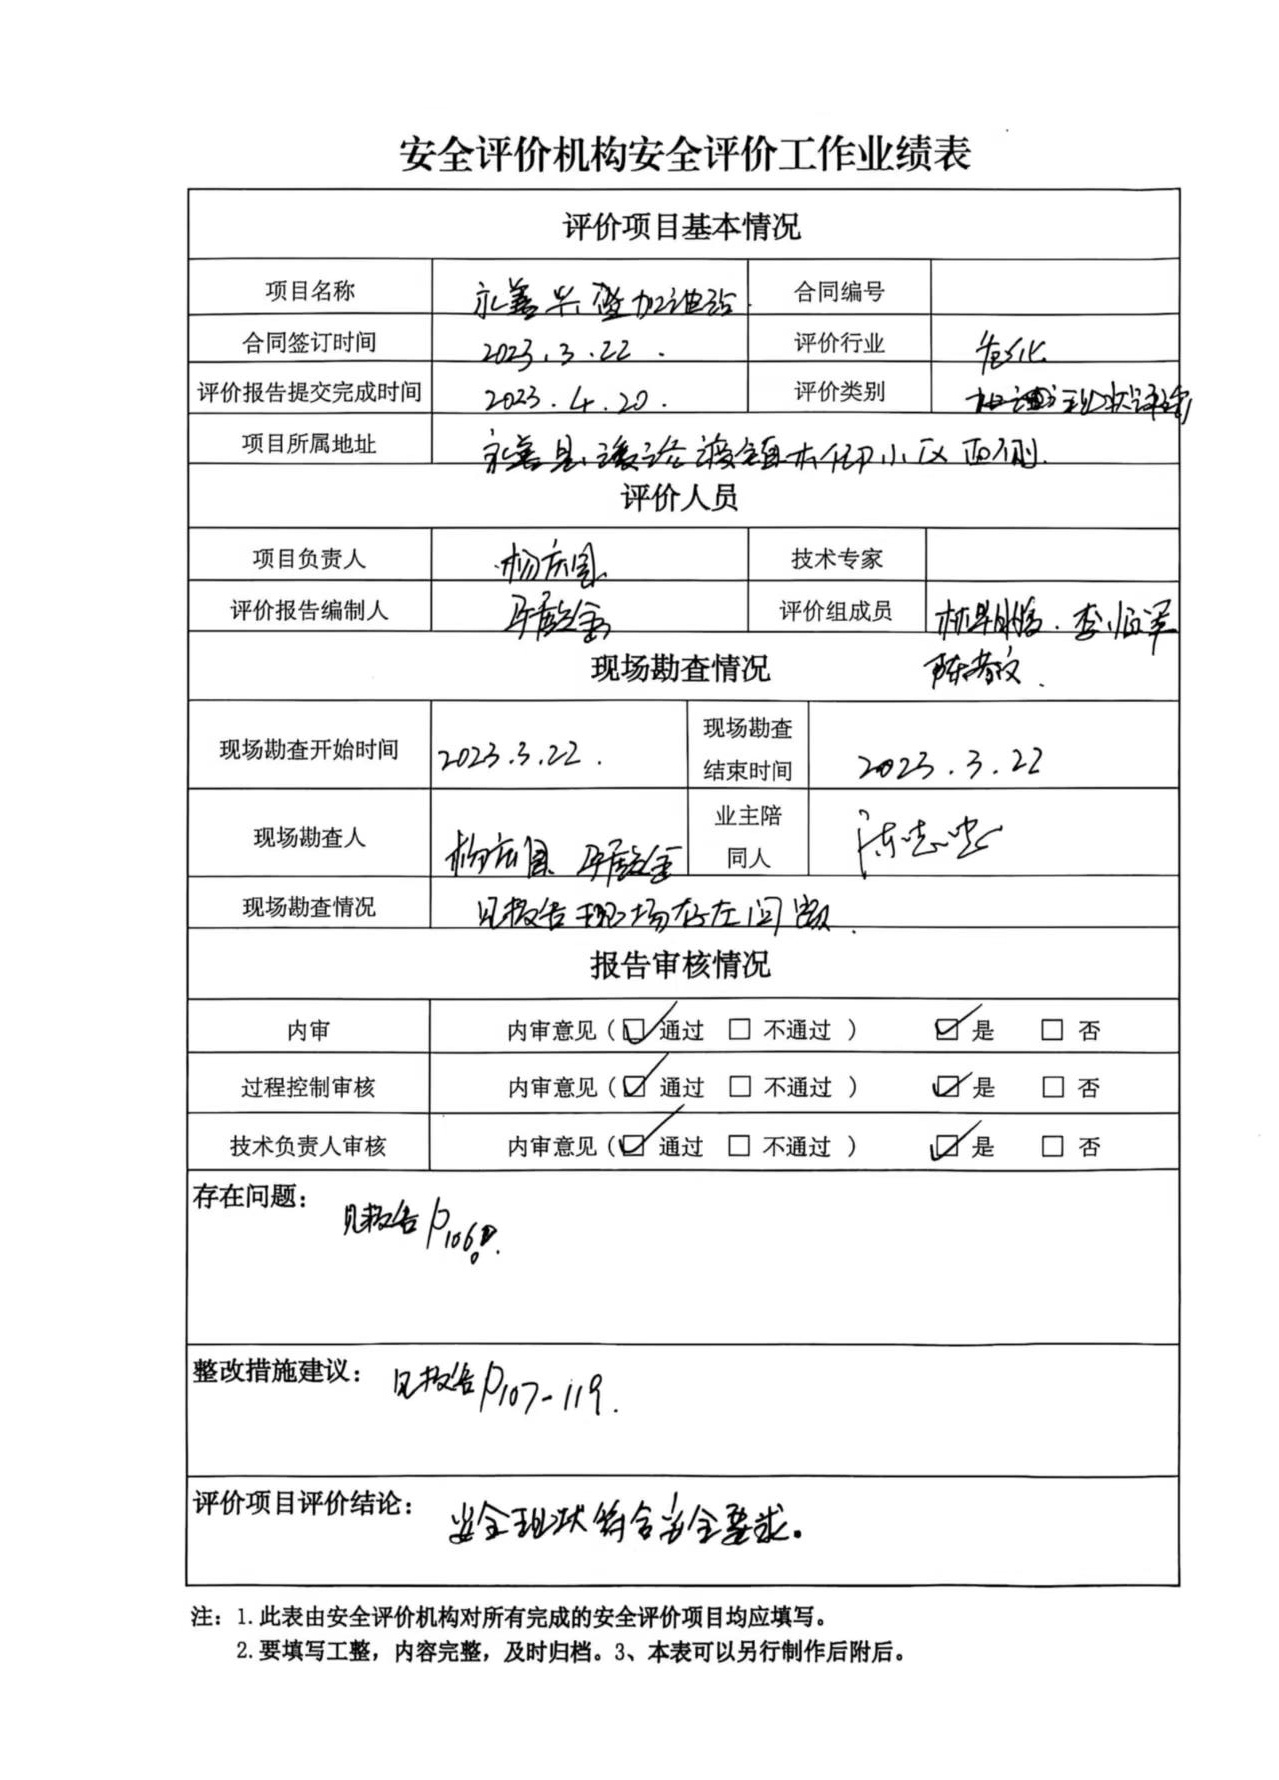 安全评价机构安全评价工作业绩表
评价项目基本情况
项目名称 永善兴隆加油站 合同编号
合同签订时间 2023.3.22. 评价行业 危化
评价报告提交完成时间 2023.4.20. 评价类别 现状评价
项目所属地址 永善县溪洛渡镇木仰小区西侧.
评价人员
项目负责人 杨庆国 技术专家
评价报告编制人 评价组成员 李临军
现场勘查情况
现场勘查开始时间 2023.3.22. 现场勘查结束时间 2023.3.22
现场勘查人 杨庆国 业主陪同人 陈志忠
现场勘查情况 见报告现场存在问题.
报告审核情况
内审 内审意见(☑通过 □不通过) ☑是 □否
过程控制审核 内审意见(☑通过 □不通过) ☑是 □否
技术负责人审核 内审意见(☑通过 □不通过) ☑是 □否
存在问题: 见报告P106.
整改措施建议: 见报告P107-119.
评价项目评价结论: 安全现状符合安全要求。
注:1.此表由安全评价机构对所有完成的安全评价项目均应填写。
2.要填写工整,内容完整,及时归档。3、本表可以另行制作后附后。